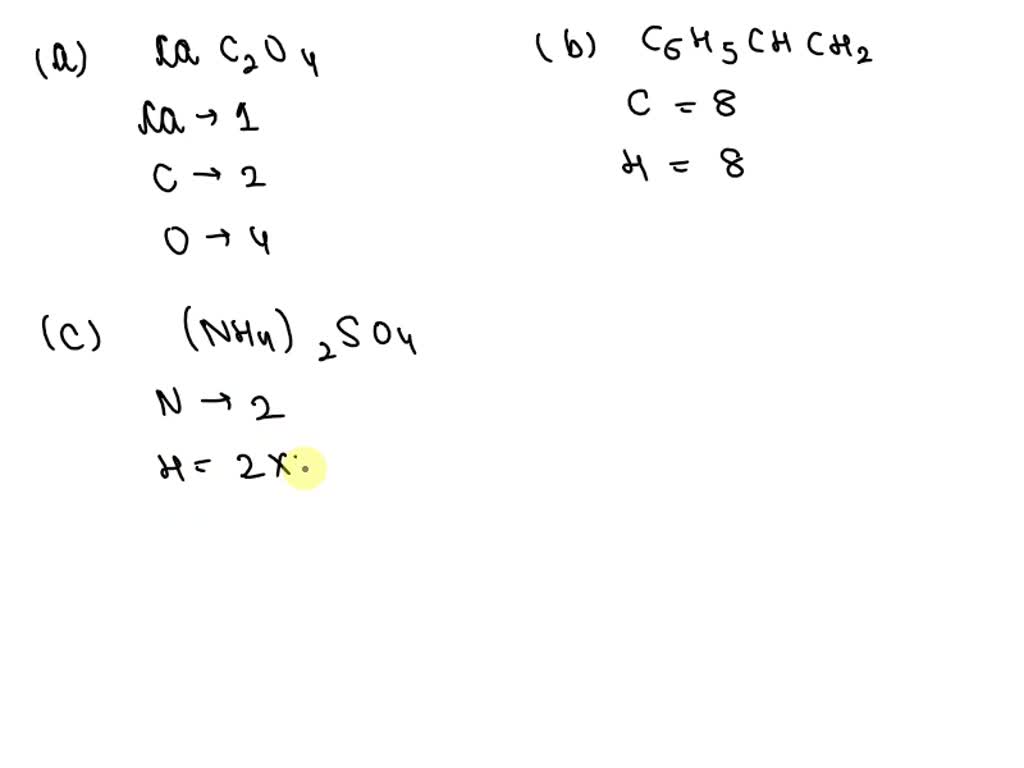 (a) CaC₂O₄
Ca → 1
C → 2
O → 4
(b) C₆H₅CHCH₂
C = 8
H = 8
(c) (NH₄)₂SO₄
N → 2
H = 2×